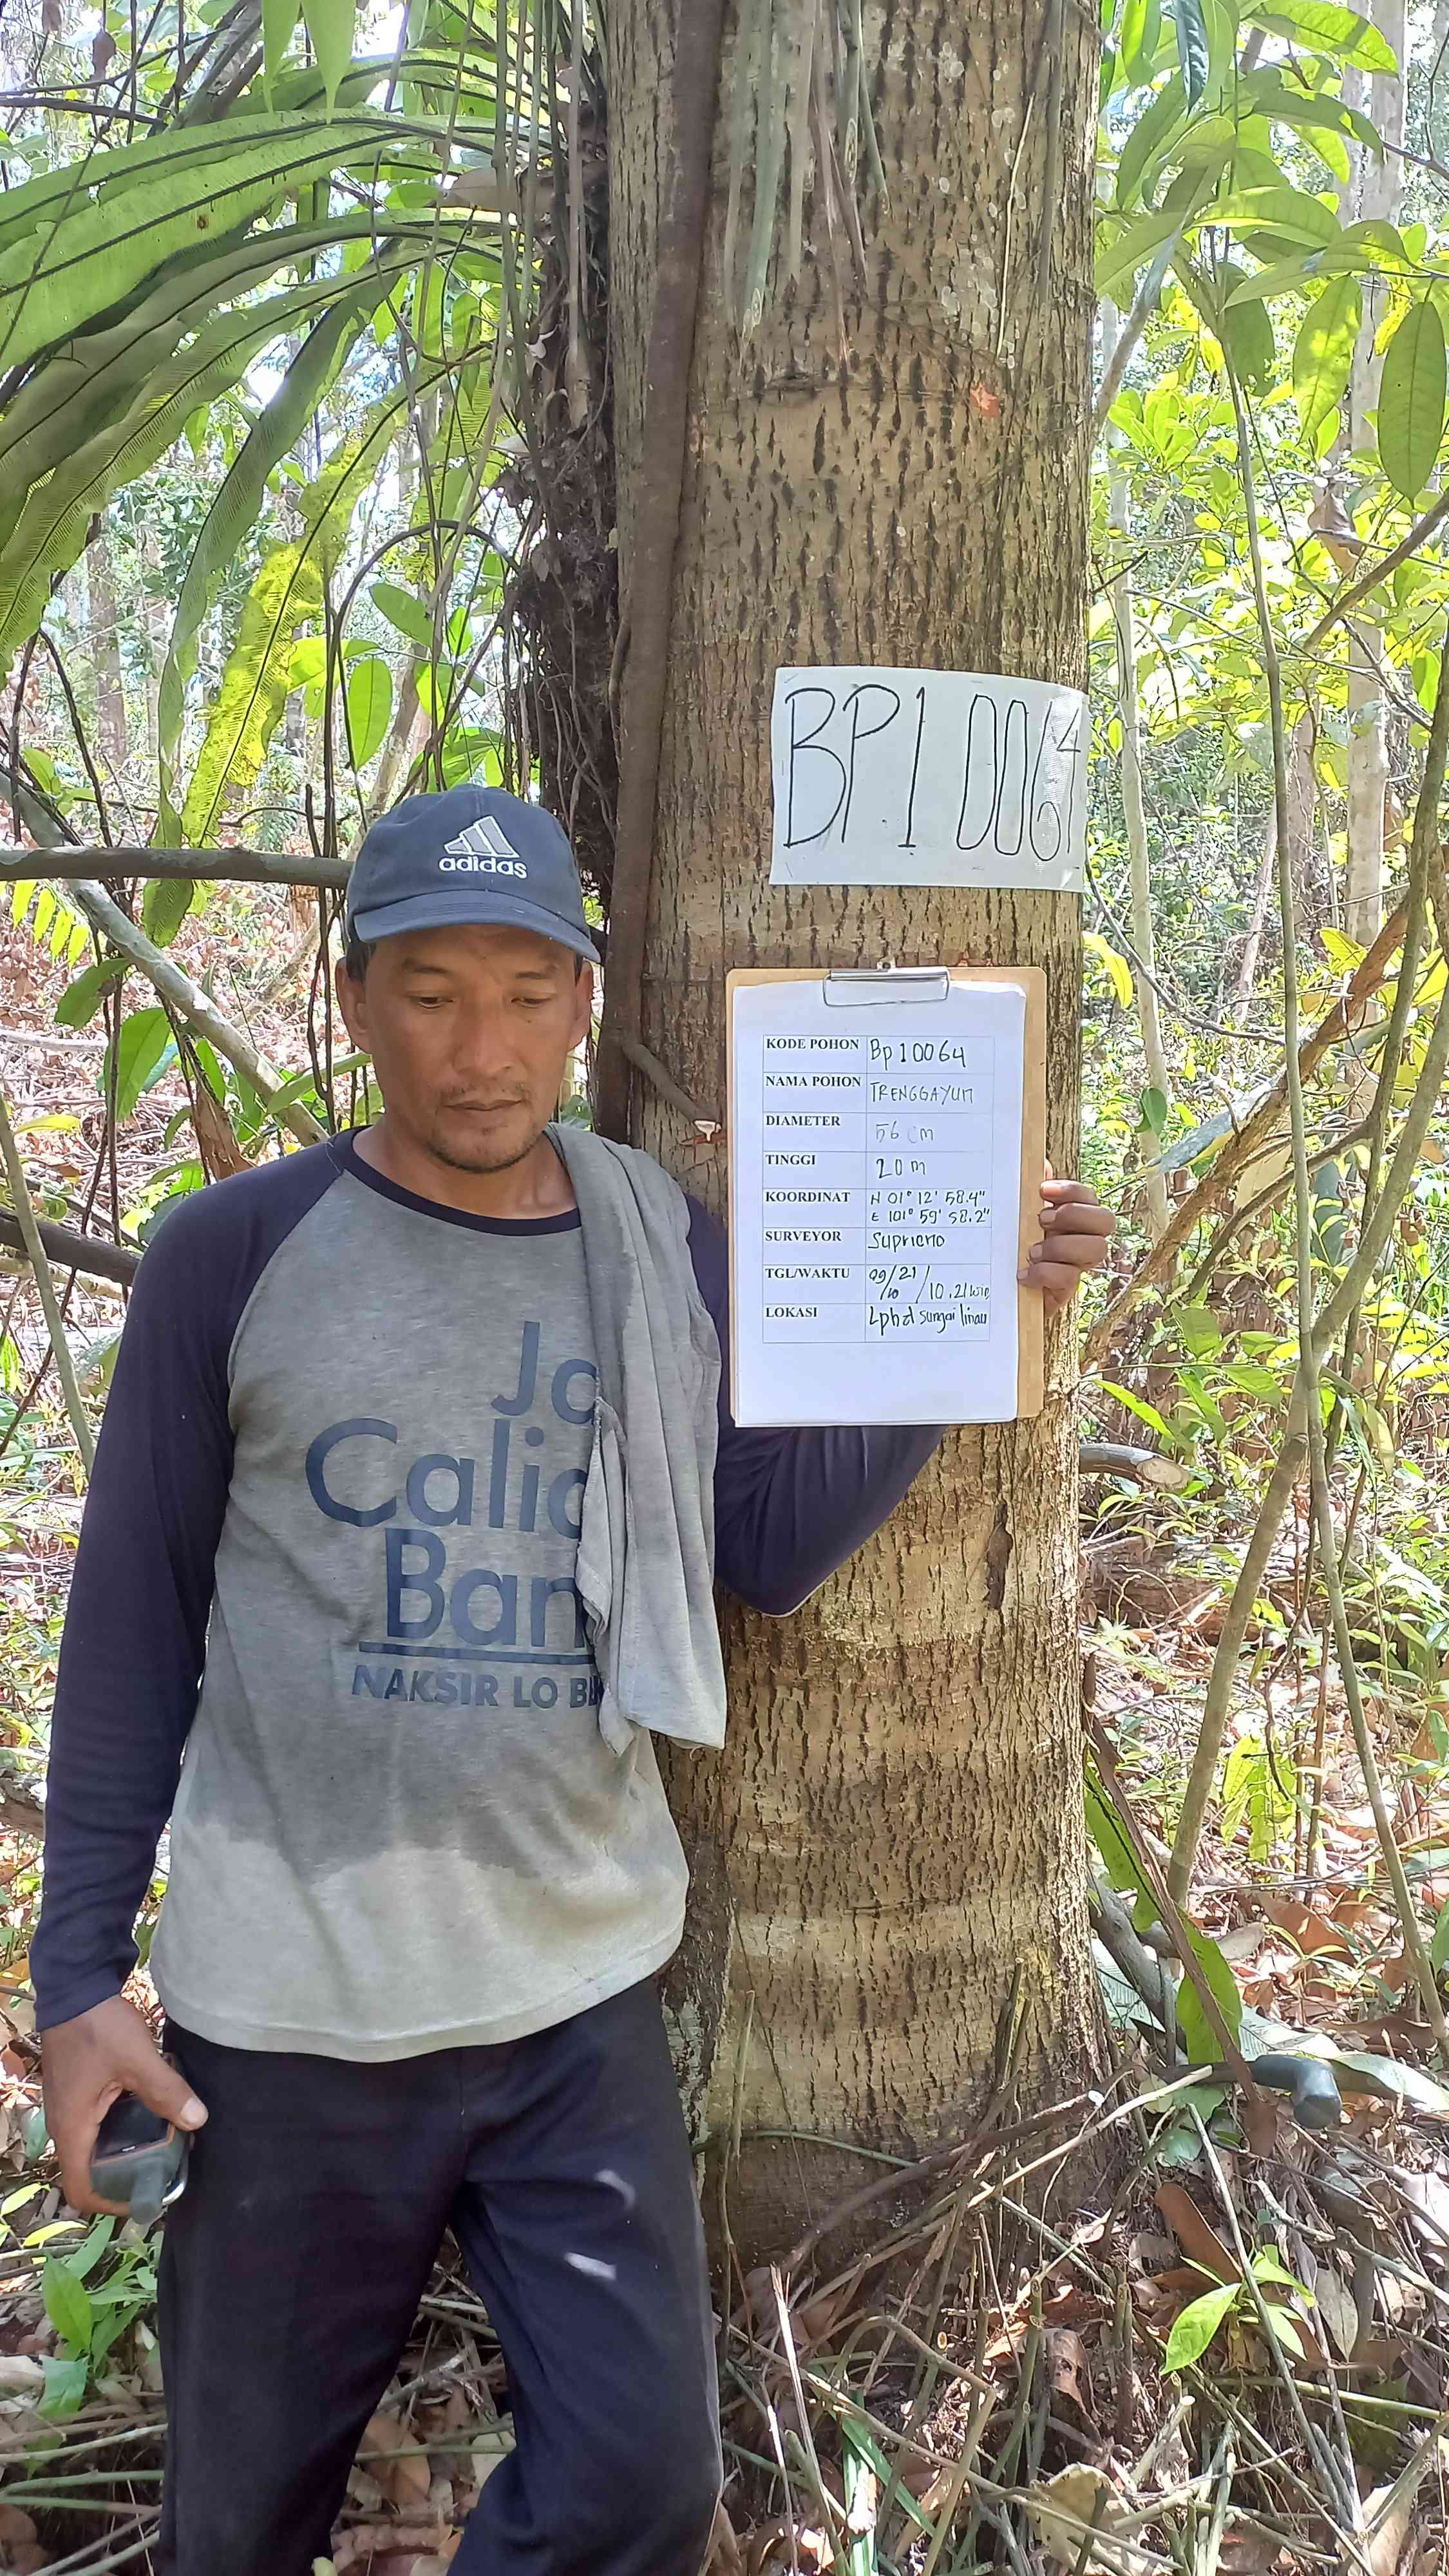 BP1 0064
adidas
KODE POHON Bp10064
NAMA POHON TRENGGAYUM
DIAMETER 56 cm
TINGGI 20 m
KOORDINAT N 01° 12' 58.4"
E 101° 59' 58.2"
SURVEYOR Suprieno
TGL/WAKTU 09/21/10 /10.21 wib
LOKASI Lphd Sungai linau
Ja
Calio
Ban
NAKSIR LO B